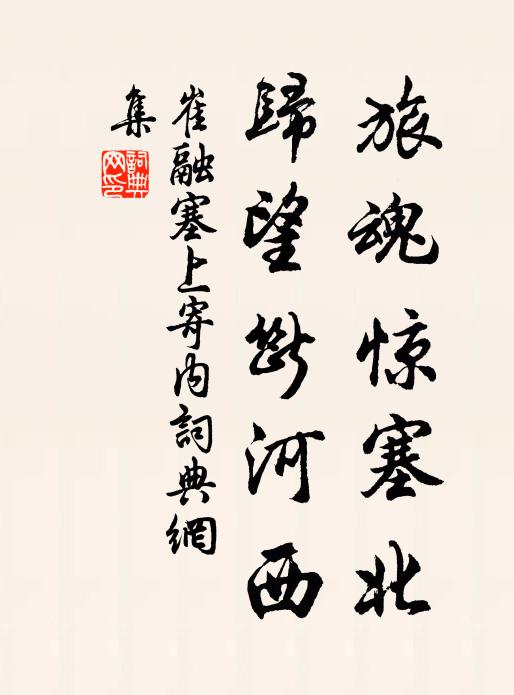 旅魂惊塞北
歸望斷河西
崔融塞上寄内詞典網
集
詞典
网印